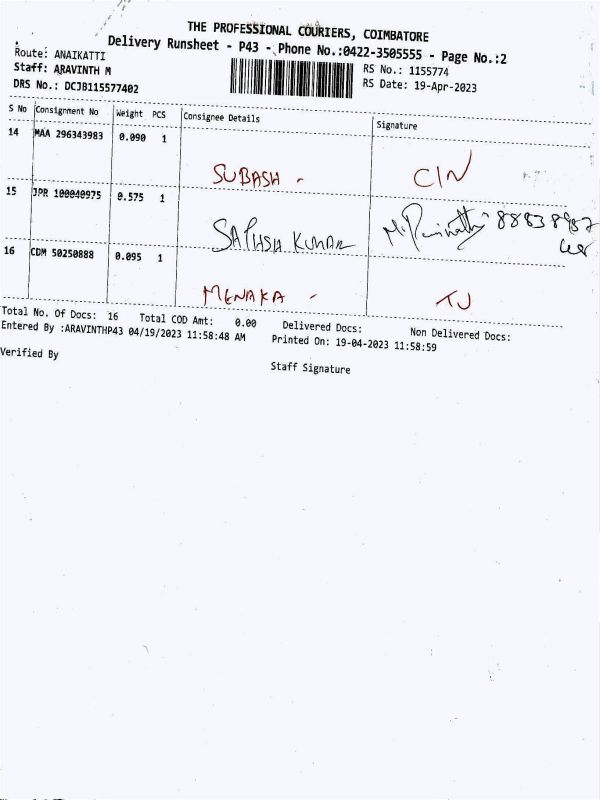 THE PROFESSIONAL COURIERS, COIMBATORE
Delivery Runsheet - P43 - Phone No.:0422-3505555 - Page No.:2
Route: ANAIKATTI
Staff: ARAVINTH M
RS No.: 1155774
DRS No.: DCJB115577402
RS Date: 19-Apr-2023
S No Consignment No Weight PCS Consignee Details Signature
14 MAA 296343983 0.090 1
SUBASH - CIN
15 JPR 100040975 0.575 1
KUMAR
16 CDM 50250888 0.095 1
MENAKA - TJ
Total No. Of Docs: 16 Total COD Amt: 0.00 Delivered Docs: Non Delivered Docs:
Entered By :ARAVINTHP43 04/19/2023 11:58:48 AM Printed On: 19-04-2023 11:58:59
Verified By
Staff Signature